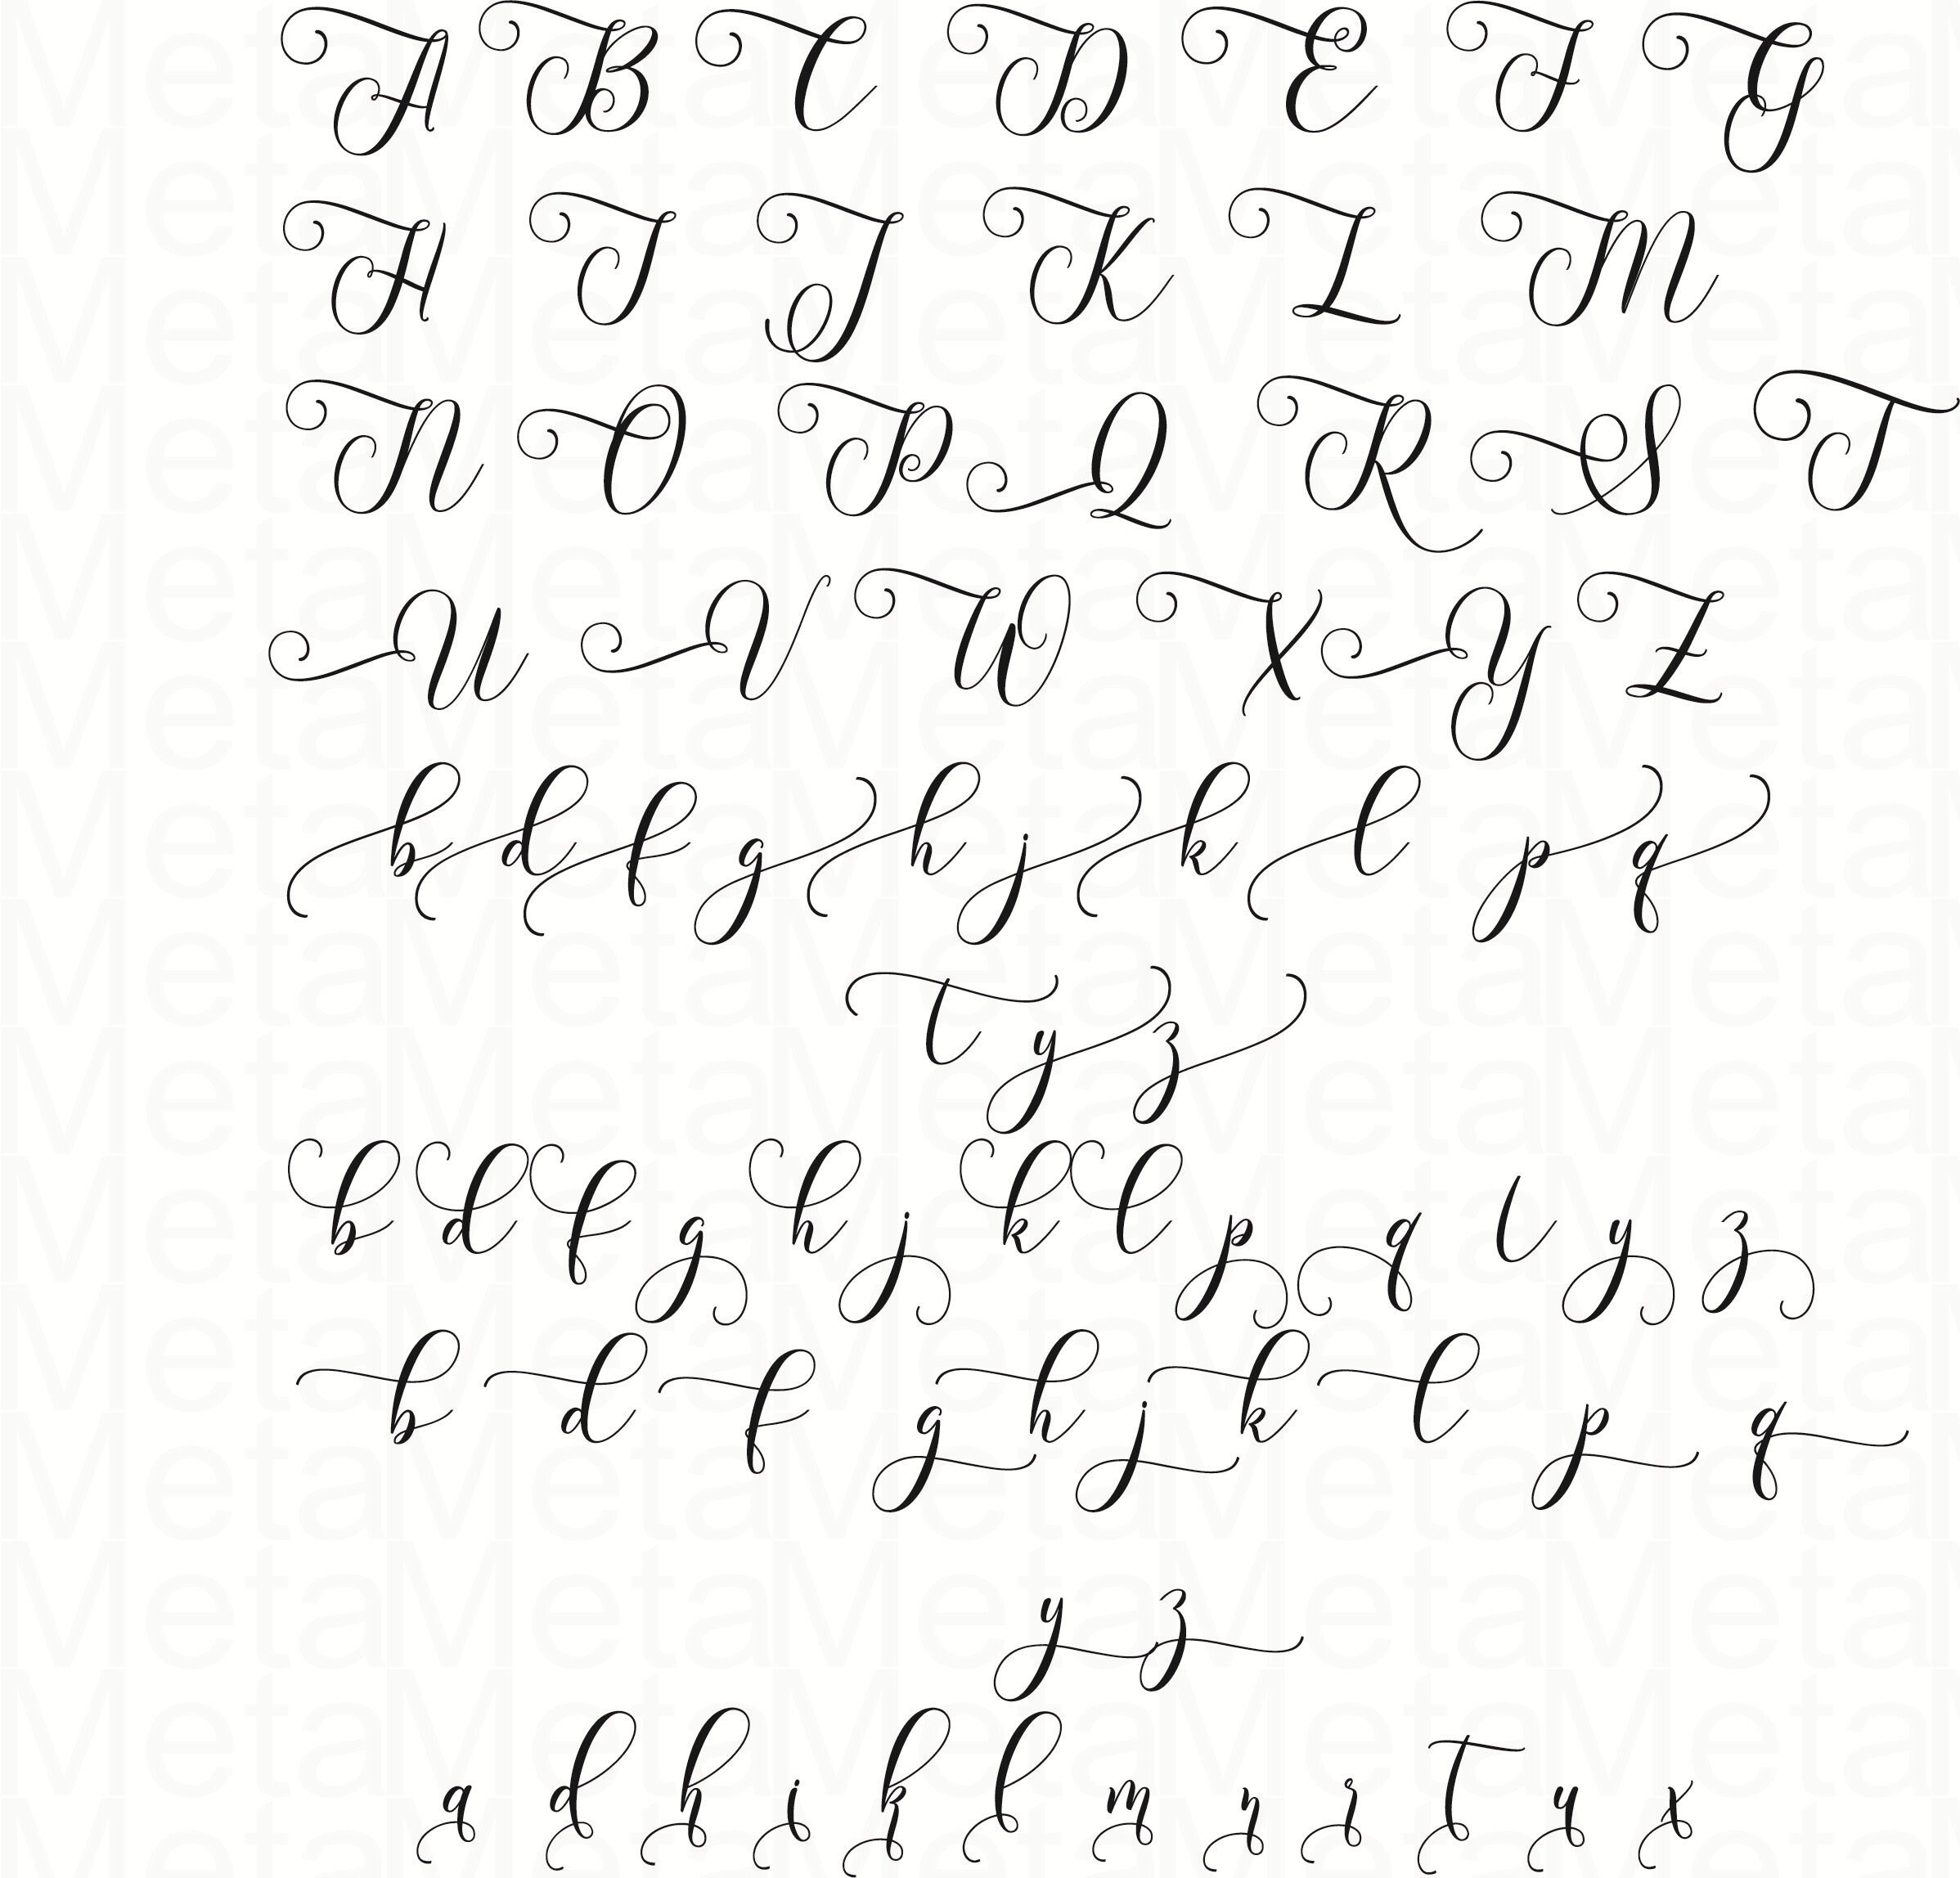 A B C D E F G
H I J K L M
N O P Q R S T
U V W X Y Z
b d f g h j k l p q
t y z
b d f g h j k l p q l y z
b d f g h j k l p q
y z
a d h i k l m n r t u x